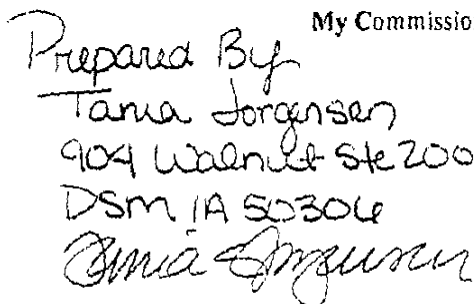 My Commissio
Prepared By
Tania Jorgensen
904 Walnut Ste 200
DSM IA 50306
Tania Jorgensen